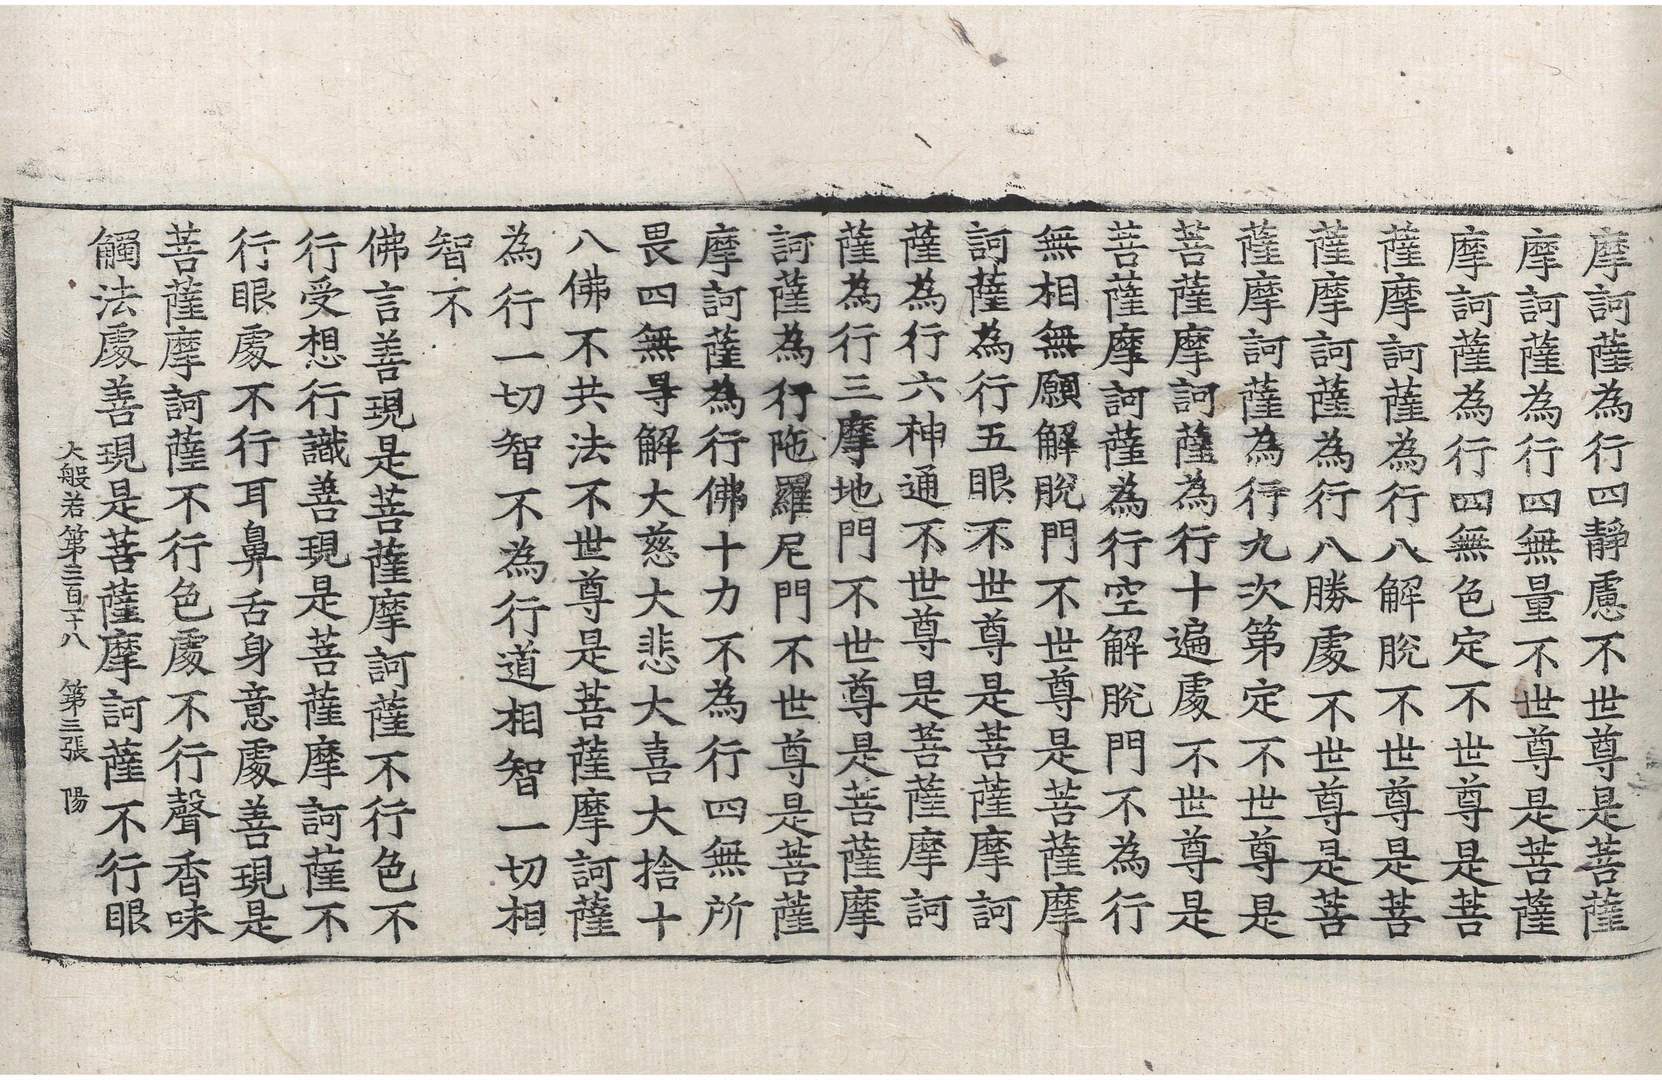 摩訶薩為行四靜慮不世尊是菩薩
摩訶薩為行四無量不世尊是菩薩
摩訶薩為行四無色定不世尊是菩
薩摩訶薩為行八解脫不世尊是菩
薩摩訶薩為行八勝處不世尊是菩
薩摩訶薩為行九次第定不世尊是
菩薩摩訶薩為行十遍處不世尊是
菩薩摩訶薩為行空解脫門不為行
無相無願解脫門不世尊是菩薩摩
訶薩為行五眼不世尊是菩薩摩訶
薩為行六神通不世尊是菩薩摩訶
薩為行三摩地門不世尊是菩薩摩
訶薩為行陁羅尼門不世尊是菩薩
摩訶薩為行佛十力不為行四無所
畏四無㝵解大慈大悲大喜大捨十
八佛不共法不世尊是菩薩摩訶薩
為行一切智不為行道相智一切相
智不
佛言善現是菩薩摩訶薩不行色不
行受想行識善現是菩薩摩訶薩不
行眼處不行耳鼻舌身意處善現是
菩薩摩訶薩不行色處不行聲香味
觸法處善現是菩薩摩訶薩不行眼
大般若第三百一十八 第三張 陽